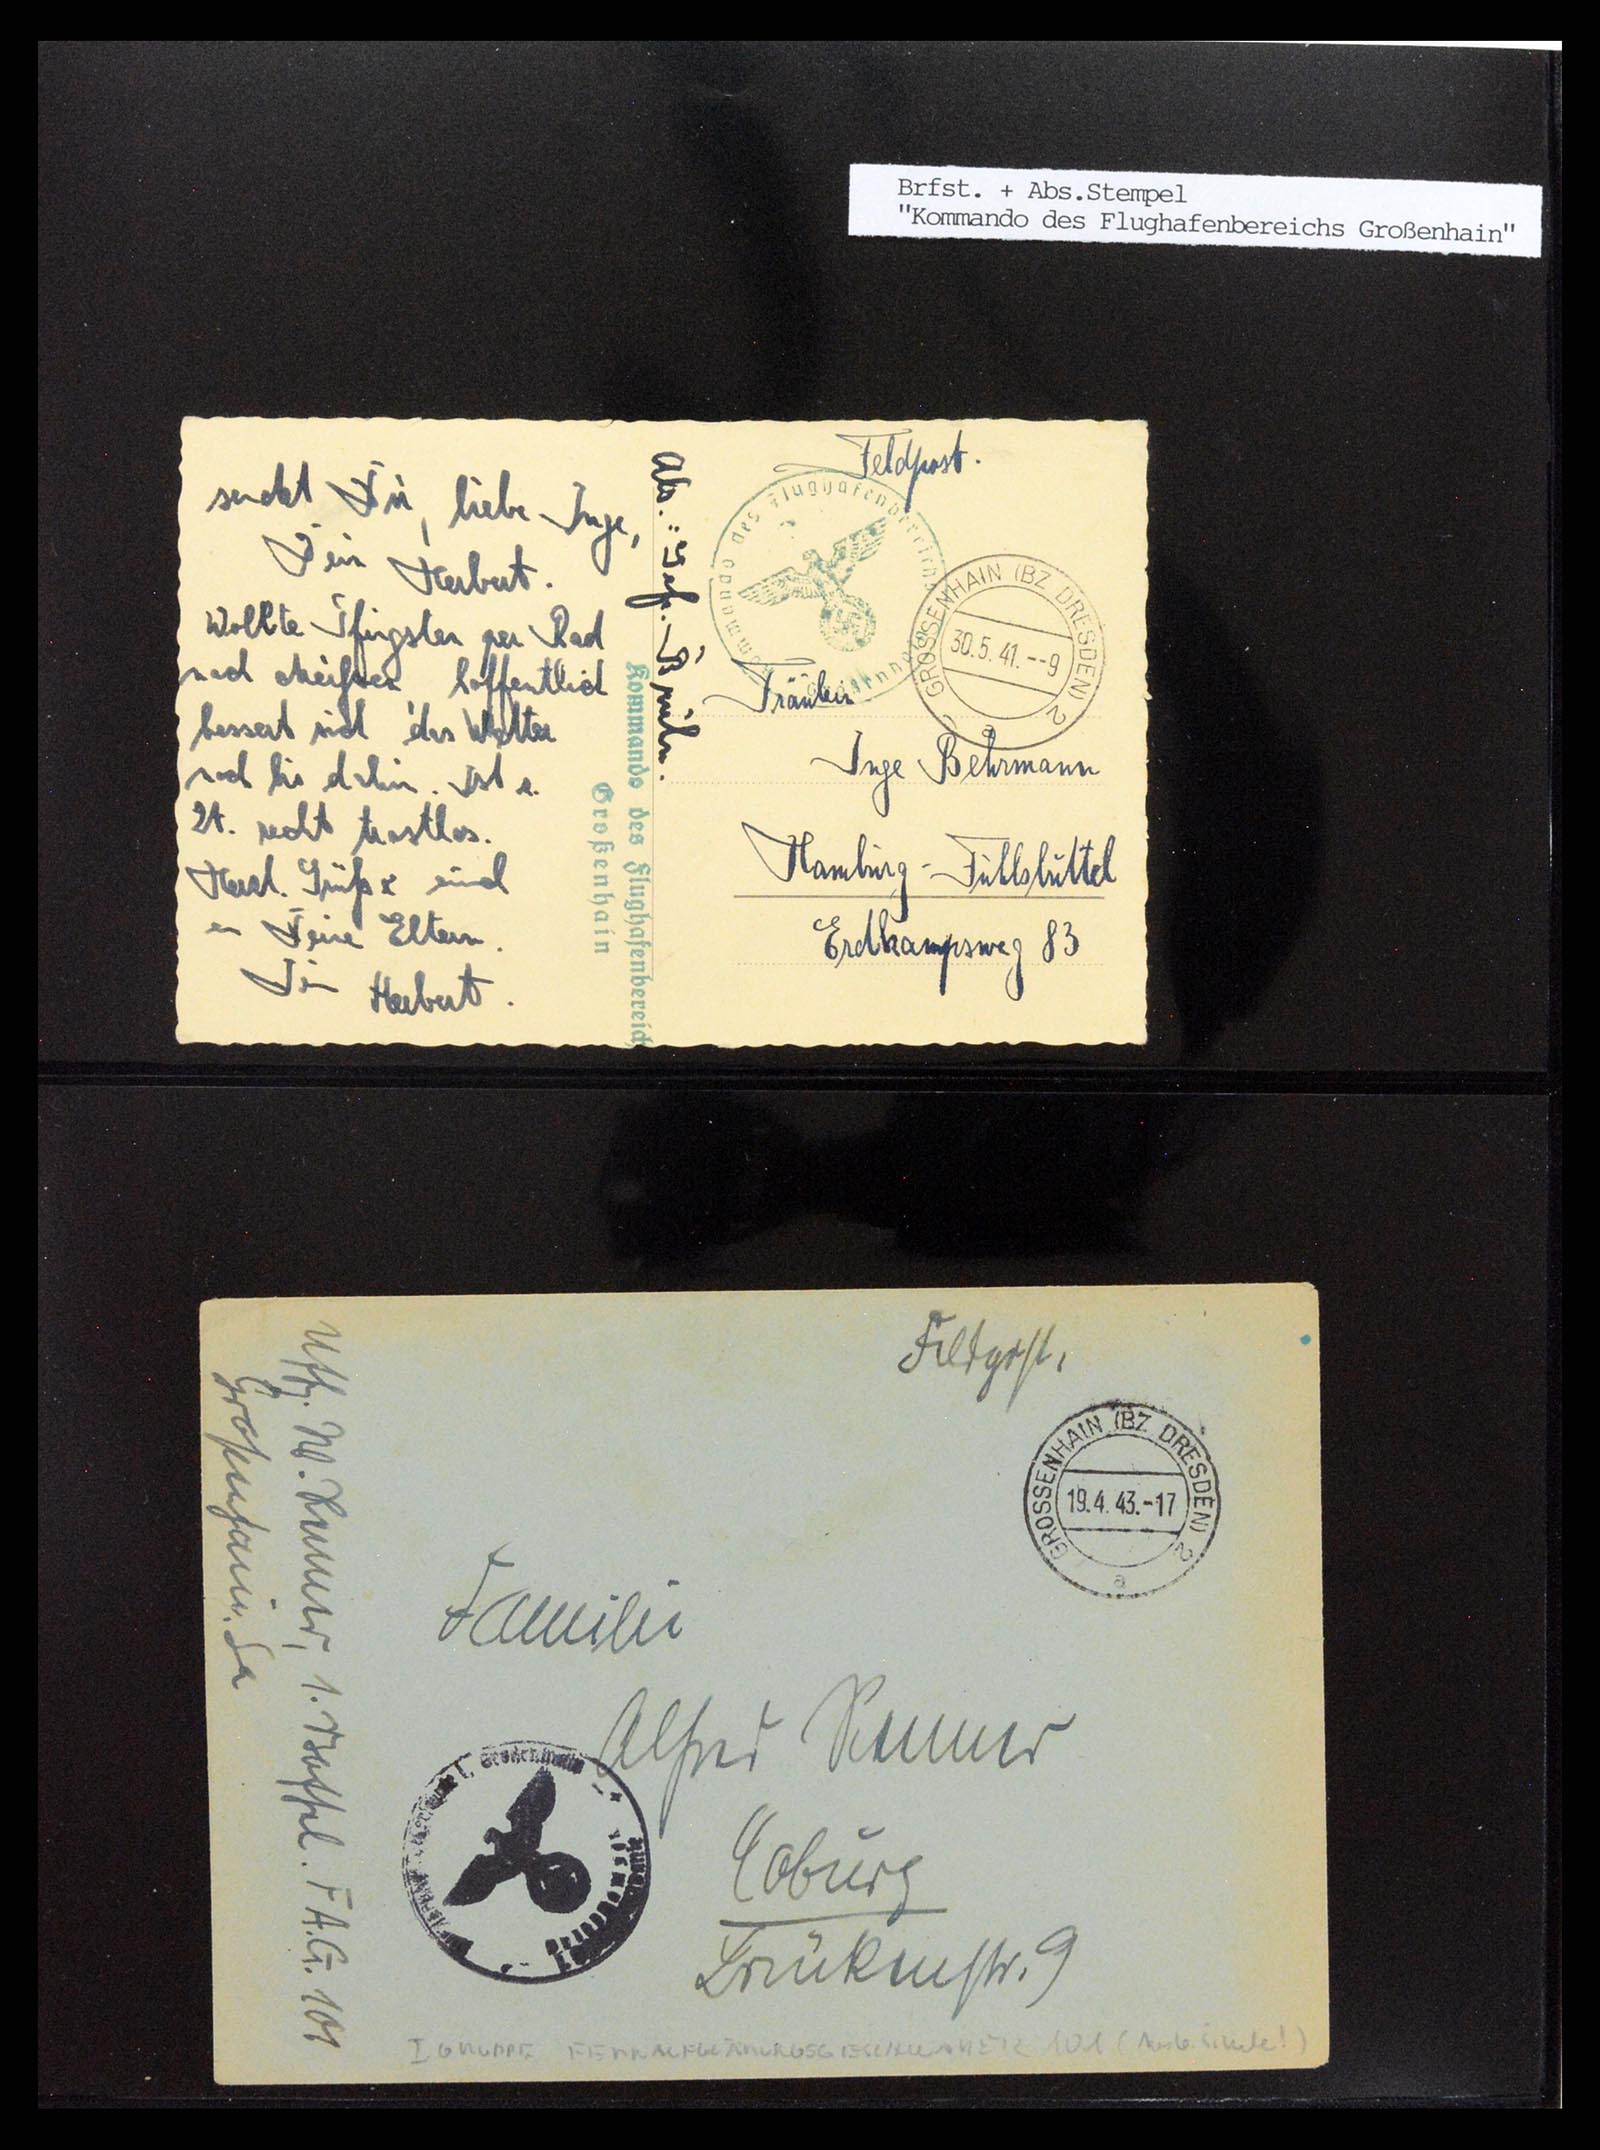 Brfst. + Abs.Stempel
"Kommando des Flughafenbereichs Großenhain"
sendet Dir, liebe Inge,
Dein Herbert.
Wollte Pfingsten per Rad
nach Meißen, hoffentlich
bessert sich das Wetter
noch bis dahin. Ist z.
Zt. recht trostlos.
Herzl. Grüße und
an Deine Eltern.
Dein Herbert.
Abs.: Gefr.
Kommando des Flughafenbereich
Großenhain
Feldpost.
Kommando des Flughafenbereichs
GROSSENHAIN (BZ. DRESDEN) 2
30.5.41.--9
a
Fräulein
Inge Behrmann
Hamburg-Fuhlsbüttel
Erdkampsweg 83
Feldpost.
GROSSENHAIN (BZ. DRESDEN) 2
19.4.43.-17
a
Uffz. W. Renner, 1. Staffel. F.A.G. 101
Großenhain. Sa
Familie
Alfred Renner
Coburg
9
I GRUPPE FERNAUFKLÄRUNGSGESCHWADER 101